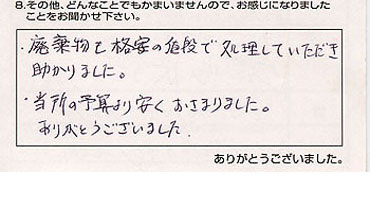 8.その他、どんなことでもかまいませんので、お感じになりました
ことをお聞かせ下さい。
・廃棄物を格安の値段で処理していただき
助かりました。
・当所の予算より安くおさまりました。
ありがとうございました.
ありがとうございました。